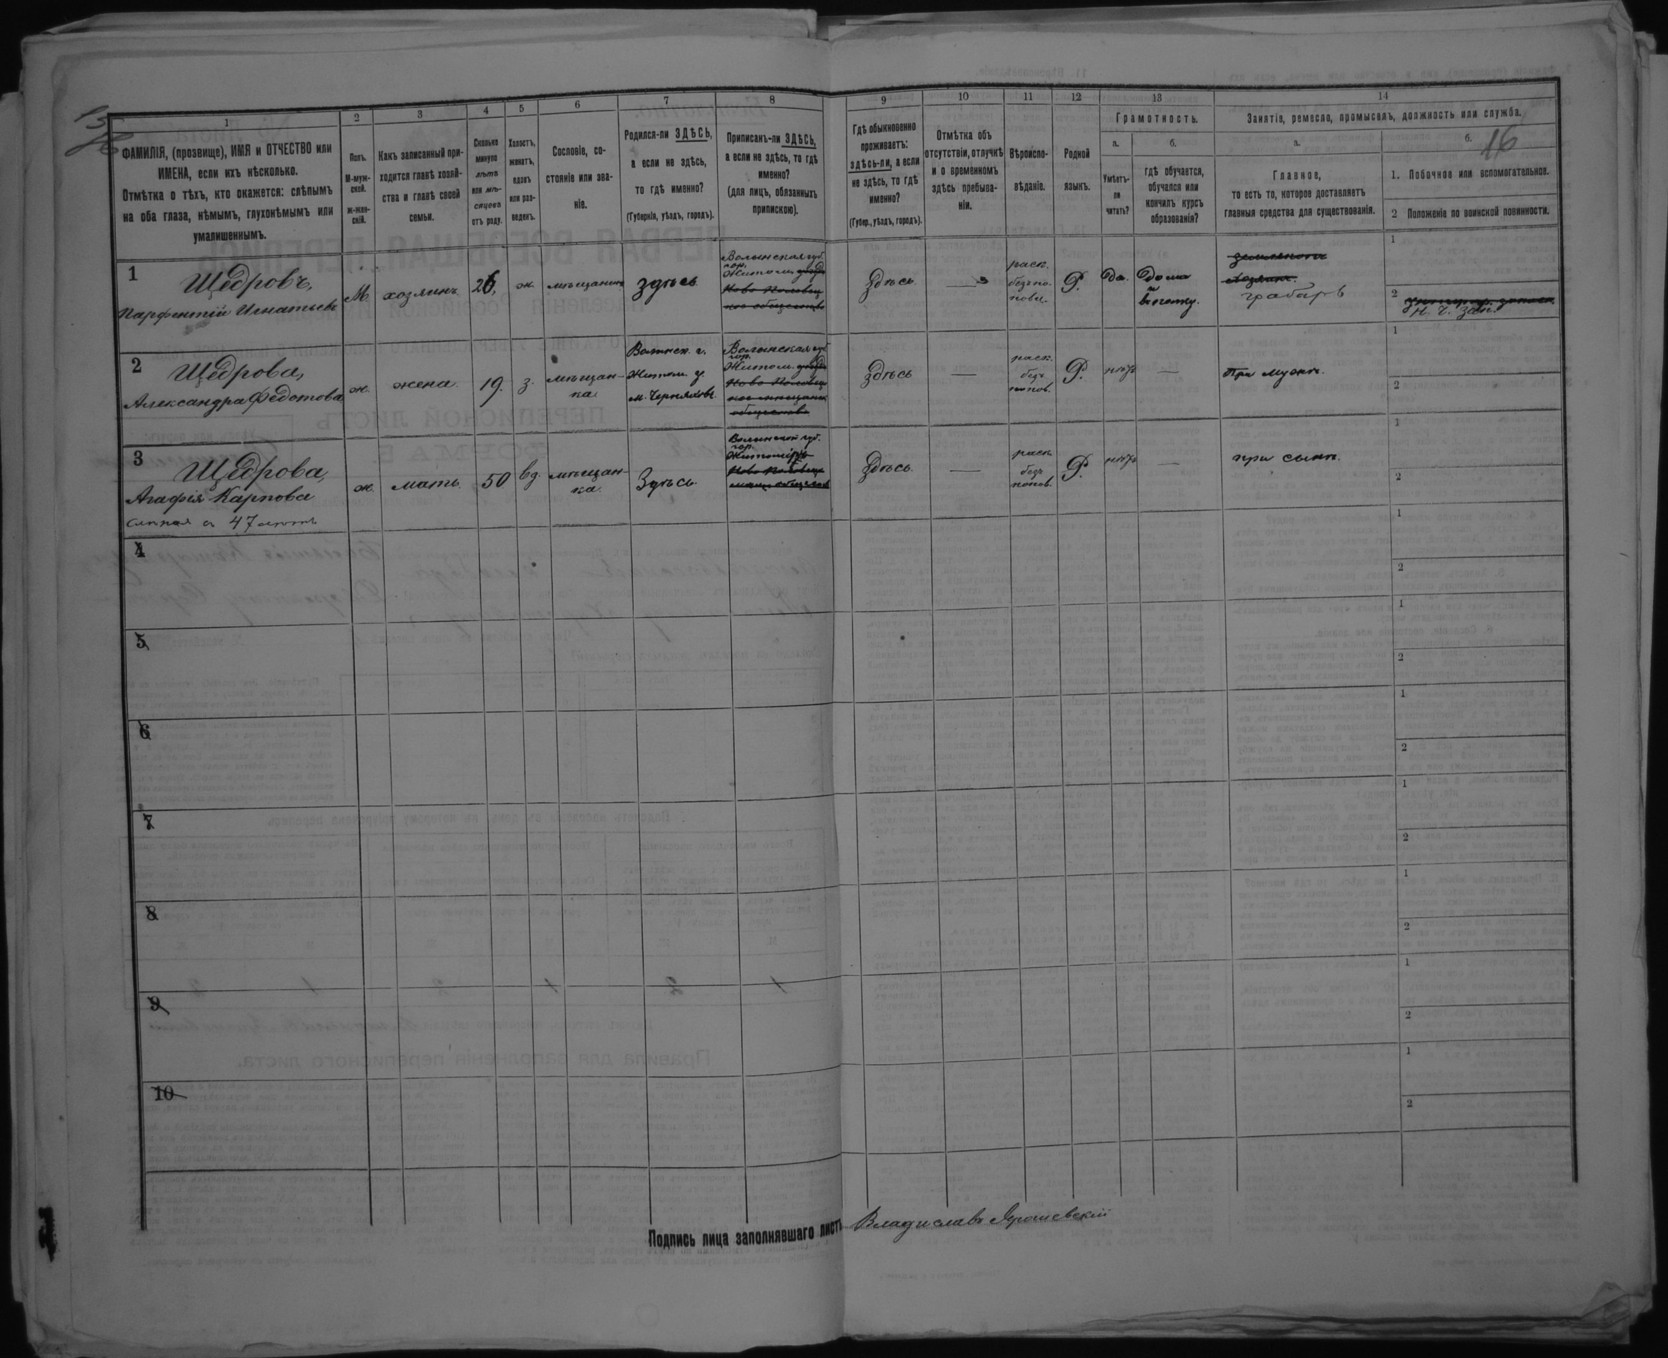 16
1
2
3
4
5
6
7
8
9
10
11
12
13
14
ФАМИЛІЯ, (прозвище), ИМЯ и ОТЧЕСТВО или
ИМЕНА, если ихъ нѣсколько.
Отмѣтка о тѣхъ, кто окажется: слѣпымъ
на оба глаза, нѣмымъ, глухонѣмымъ или
умалишеннымъ.
Полъ.
М-муж-
ской.
ж-жен-
скій.
Какъ записанный при-
ходится главѣ хозяй-
ства и главѣ своей
семьи.
Сколько
минуло
лѣтъ
или мѣ-
сяцевъ
отъ роду.
Холостъ,
женатъ,
вдовъ
или раз-
веденъ.
Сословіе, со-
стояніе или зва-
ніе.
Родился-ли ЗДѢСЬ,
а если не здѣсь,
то гдѣ именно?
(Губернія, уѣздъ, городъ).
Приписанъ-ли ЗДѢСЬ,
а если не здѣсь, то гдѣ
именно?
(для лицъ, обязанныхъ
припискою).
Гдѣ обыкновенно
проживаетъ:
здѣсь-ли, а если
не здѣсь, то гдѣ
именно?
(Губер., уѣздъ, городъ).
Отмѣтка объ
отсутствіи, отлучкѣ
и о временномъ
здѣсь пребыва-
ніи.
Вѣроиспо-
вѣданіе.
Родной
языкъ.
Грамотность.
а.
Умѣетъ-
ли
читать?
б.
гдѣ обучается,
обучался или
кончилъ курсъ
образованія?
Занятіе, ремесло, промыселъ, должность или служба.
а.
Главное,
то есть то, которое доставляетъ
главныя средства для существованія.
б.
1. Побочное или вспомогательное.
2 Положеніе по воинской повинности.
1
Щедровъ,
Парфентій Игнатьев
М.
хозяинъ
26,
ж.
мѣщанин
здѣсь
Волынская губ
гор.
Житом. уѣзда
здѣсь
—
раск.
безпо
повц.
Р.
Да.
Дома
грабаръ
1
2
2
Щедрова,
Александра Федотова
ж.
жена
19.
з.
мѣщан-
ка
Волынск. г.
Житом. у.
м. Черняхов.
Волынская губ
гор.
Житом. уѣзда
здѣсь
—
раск
без
попов.
Р.
нѣтъ
—
При мужѣ.
1
2
3
Щедрова,
Агафія Карпова
слѣпая съ 47 лѣтъ
ж.
мать
50
вд.
мѣщан-
ка
Здѣсь
Волынской губ.
гор.
Житомиръ
здѣсь
—
раск
без
попов
Р.
нѣтъ
—
при сынѣ.
1
2
4
1
2
5
1
2
6
1
2
7
1
2
8
1
2
9
1
2
10
1
2
Подпись лица заполнявшаго листъ Владиславъ Ярошевскій